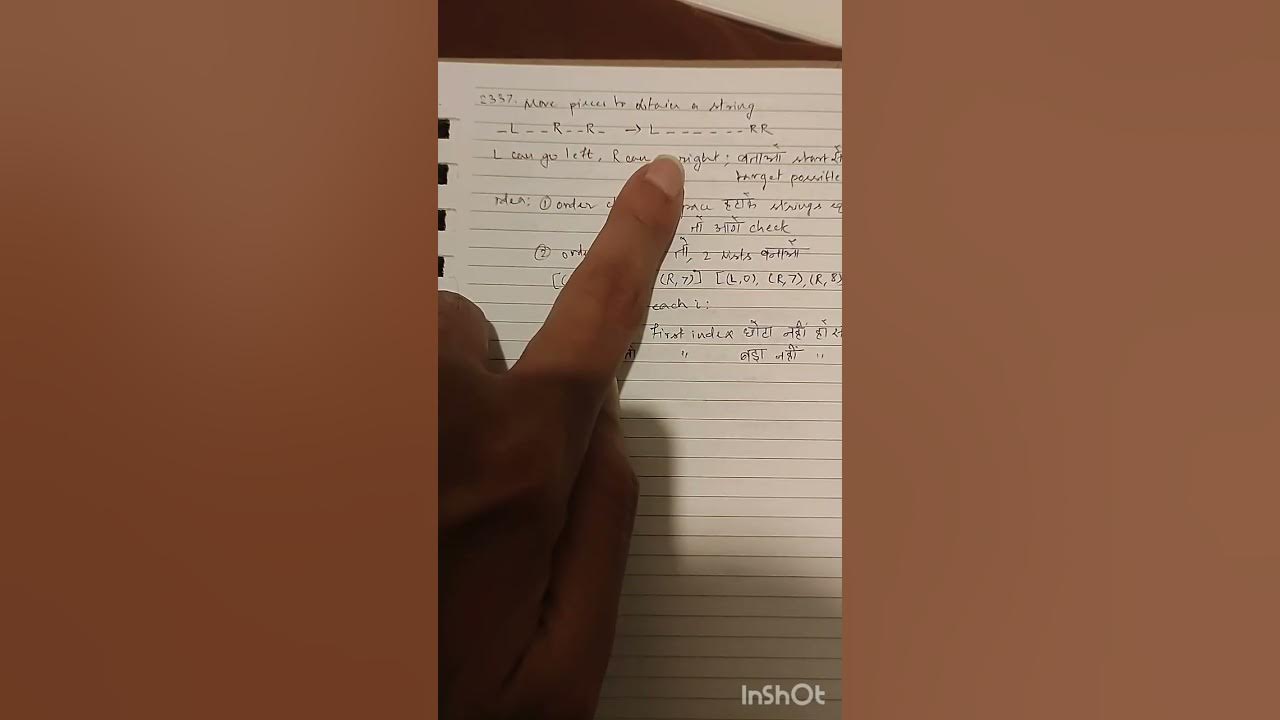 2337. Move pieces to obtain a string
_L__R__R_ → L______RR
L can go left, R can right; बताओ start से
target possible
Idea: ① order हटाके strings
तो आगे check
② तो, 2 lists बनाओ
(R,7)] [(L,0), (R,7), (R,8)
each i:
First index छोटा नहीं हो
तो " बड़ा नहीं "
InShOt